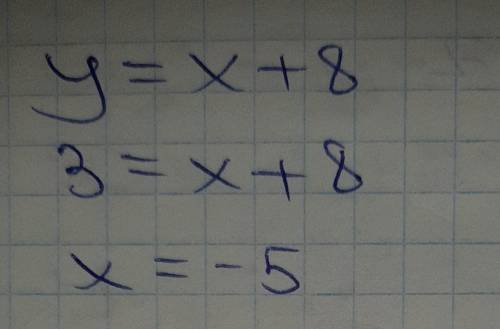 y = x + 8
3 = x + 8
x = - 5